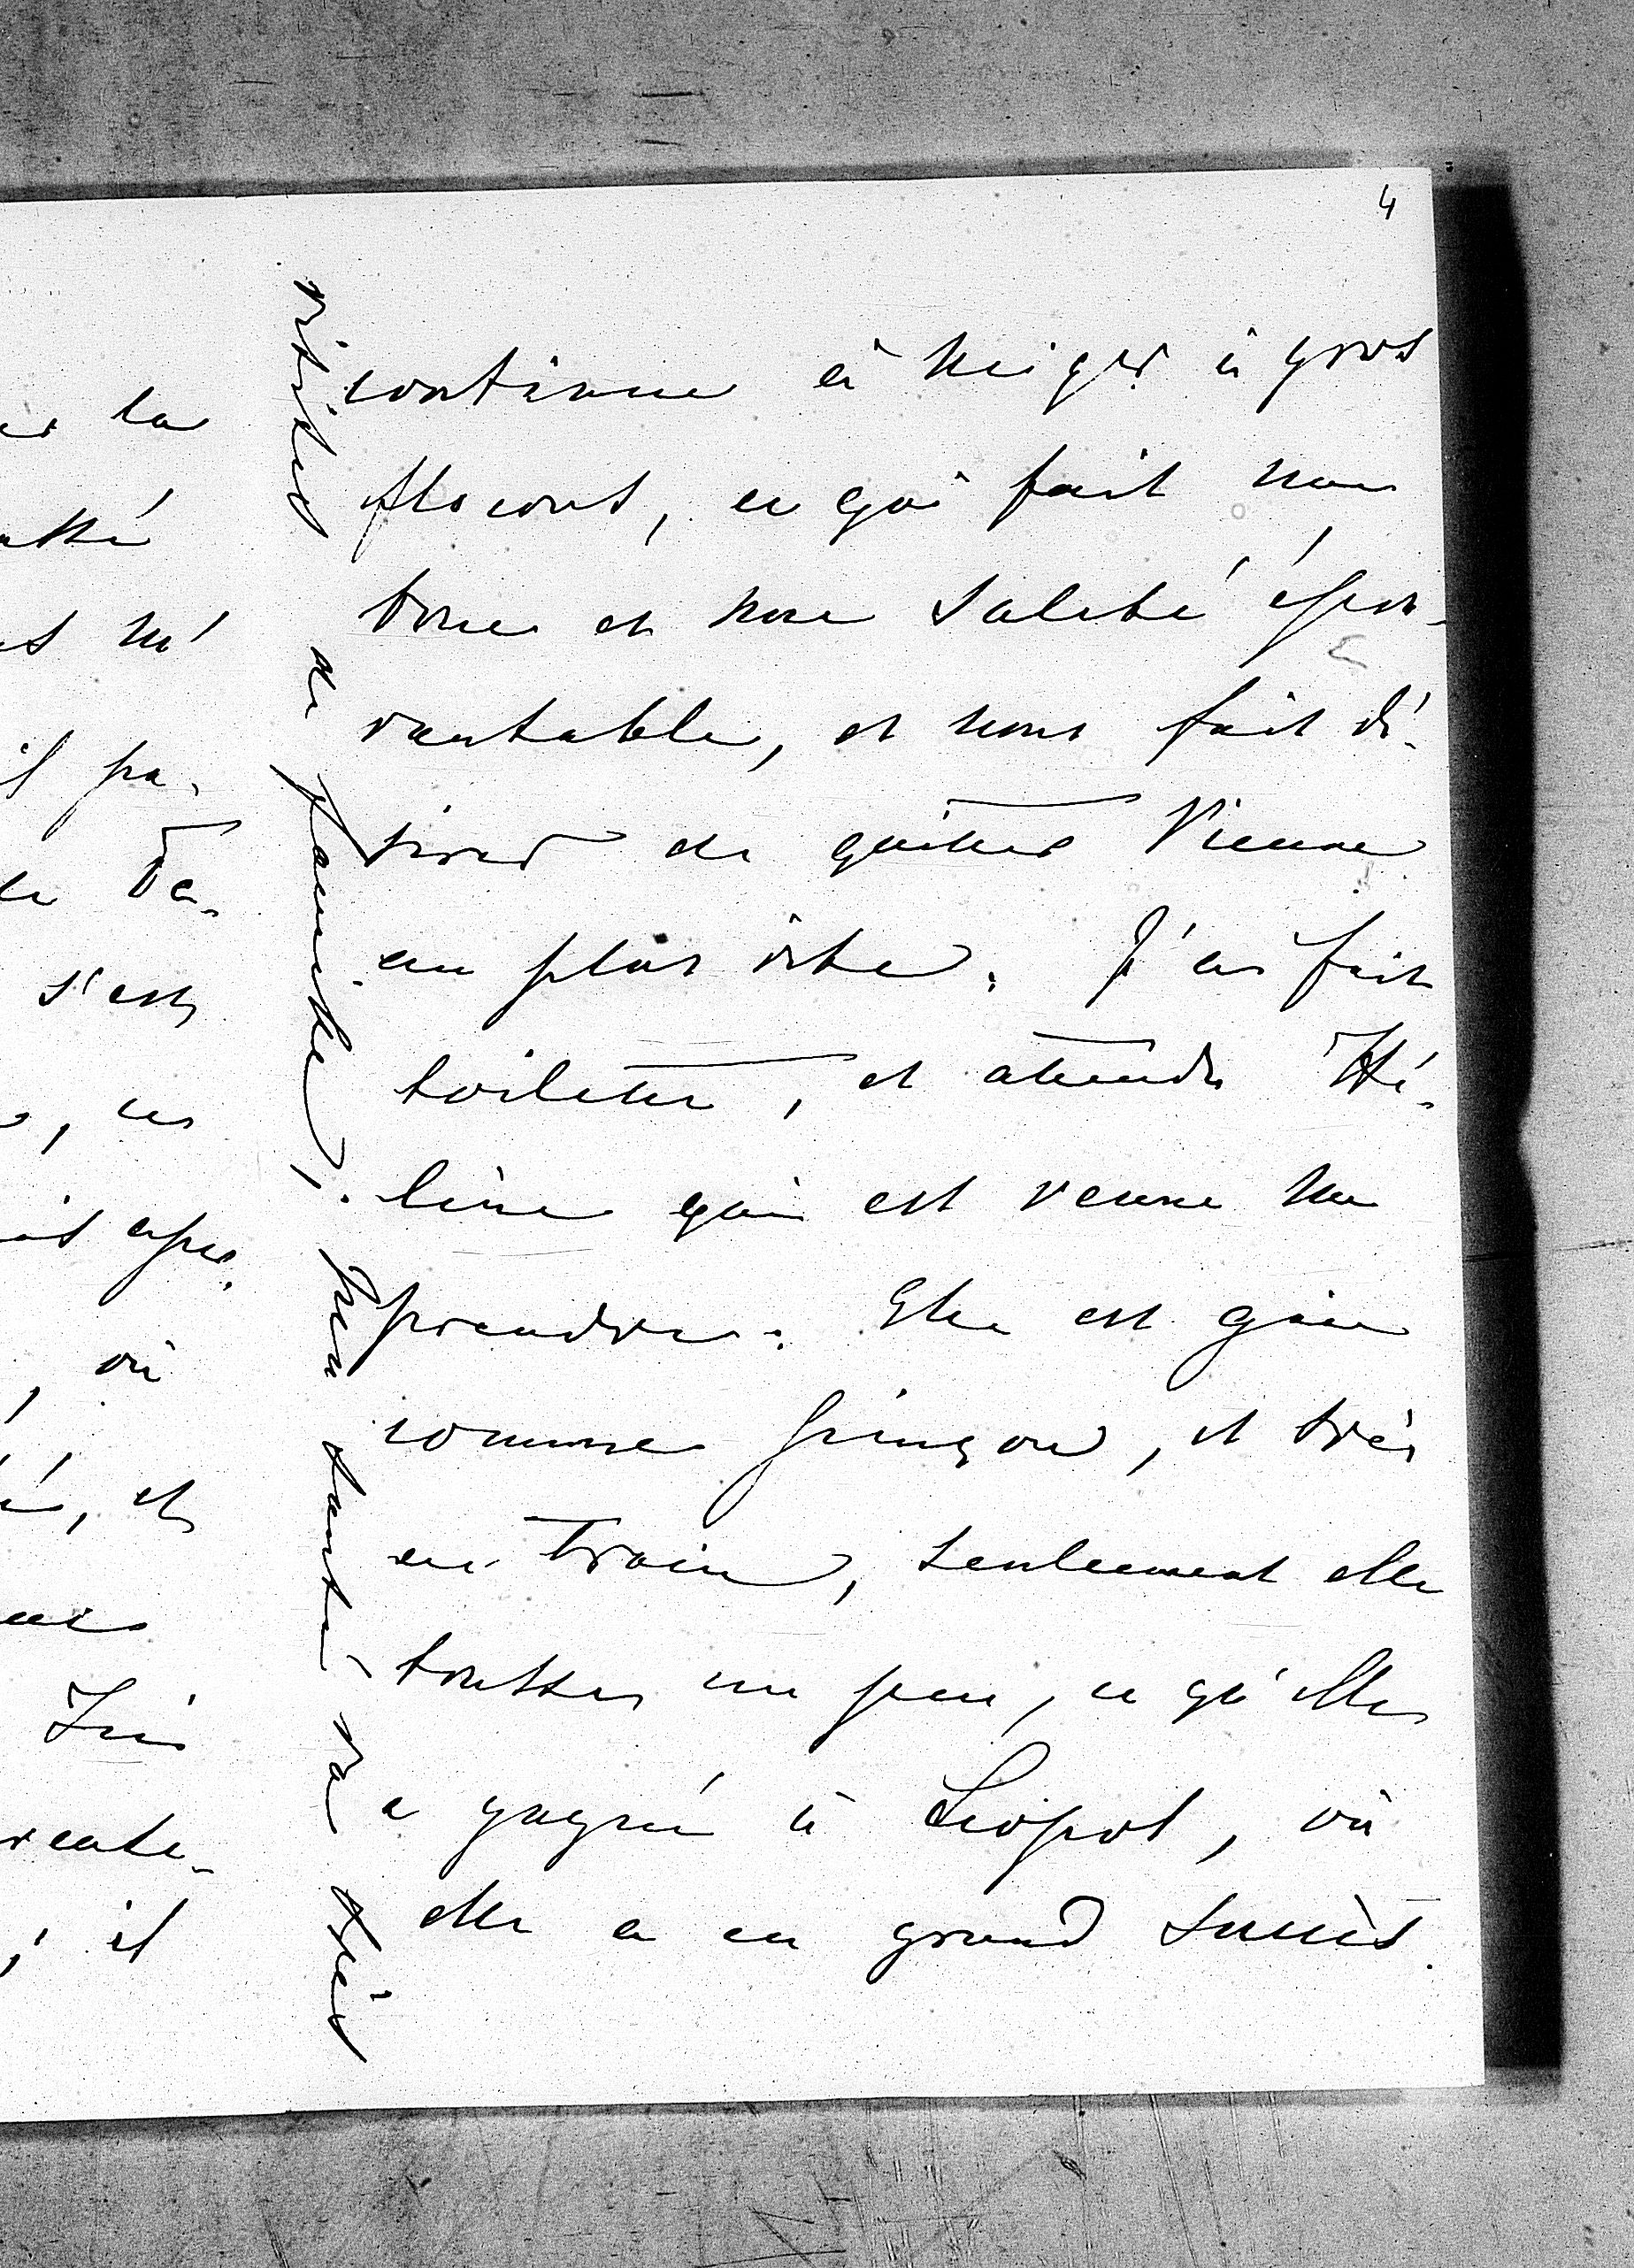 4
continue à neiger à gros
flocons, ce qui fait une
boue et une saleté épou-
vantable, et nous fait dé-
sirer de quitter Vienne
au plus vite. J'ai fait
toilette, et attends Hé-
lène qui est venue me
prendre. Elle est gaie
comme pinçon, et très
en train, seulement elle
tousse un peu, ce qu'elle
a gagné à Léopol, où
elle a eu grand succès.
visites de famille,
santé va très
er la
s m'
il pa-
de Da-
s'est
, où
é, et
cente-
; il